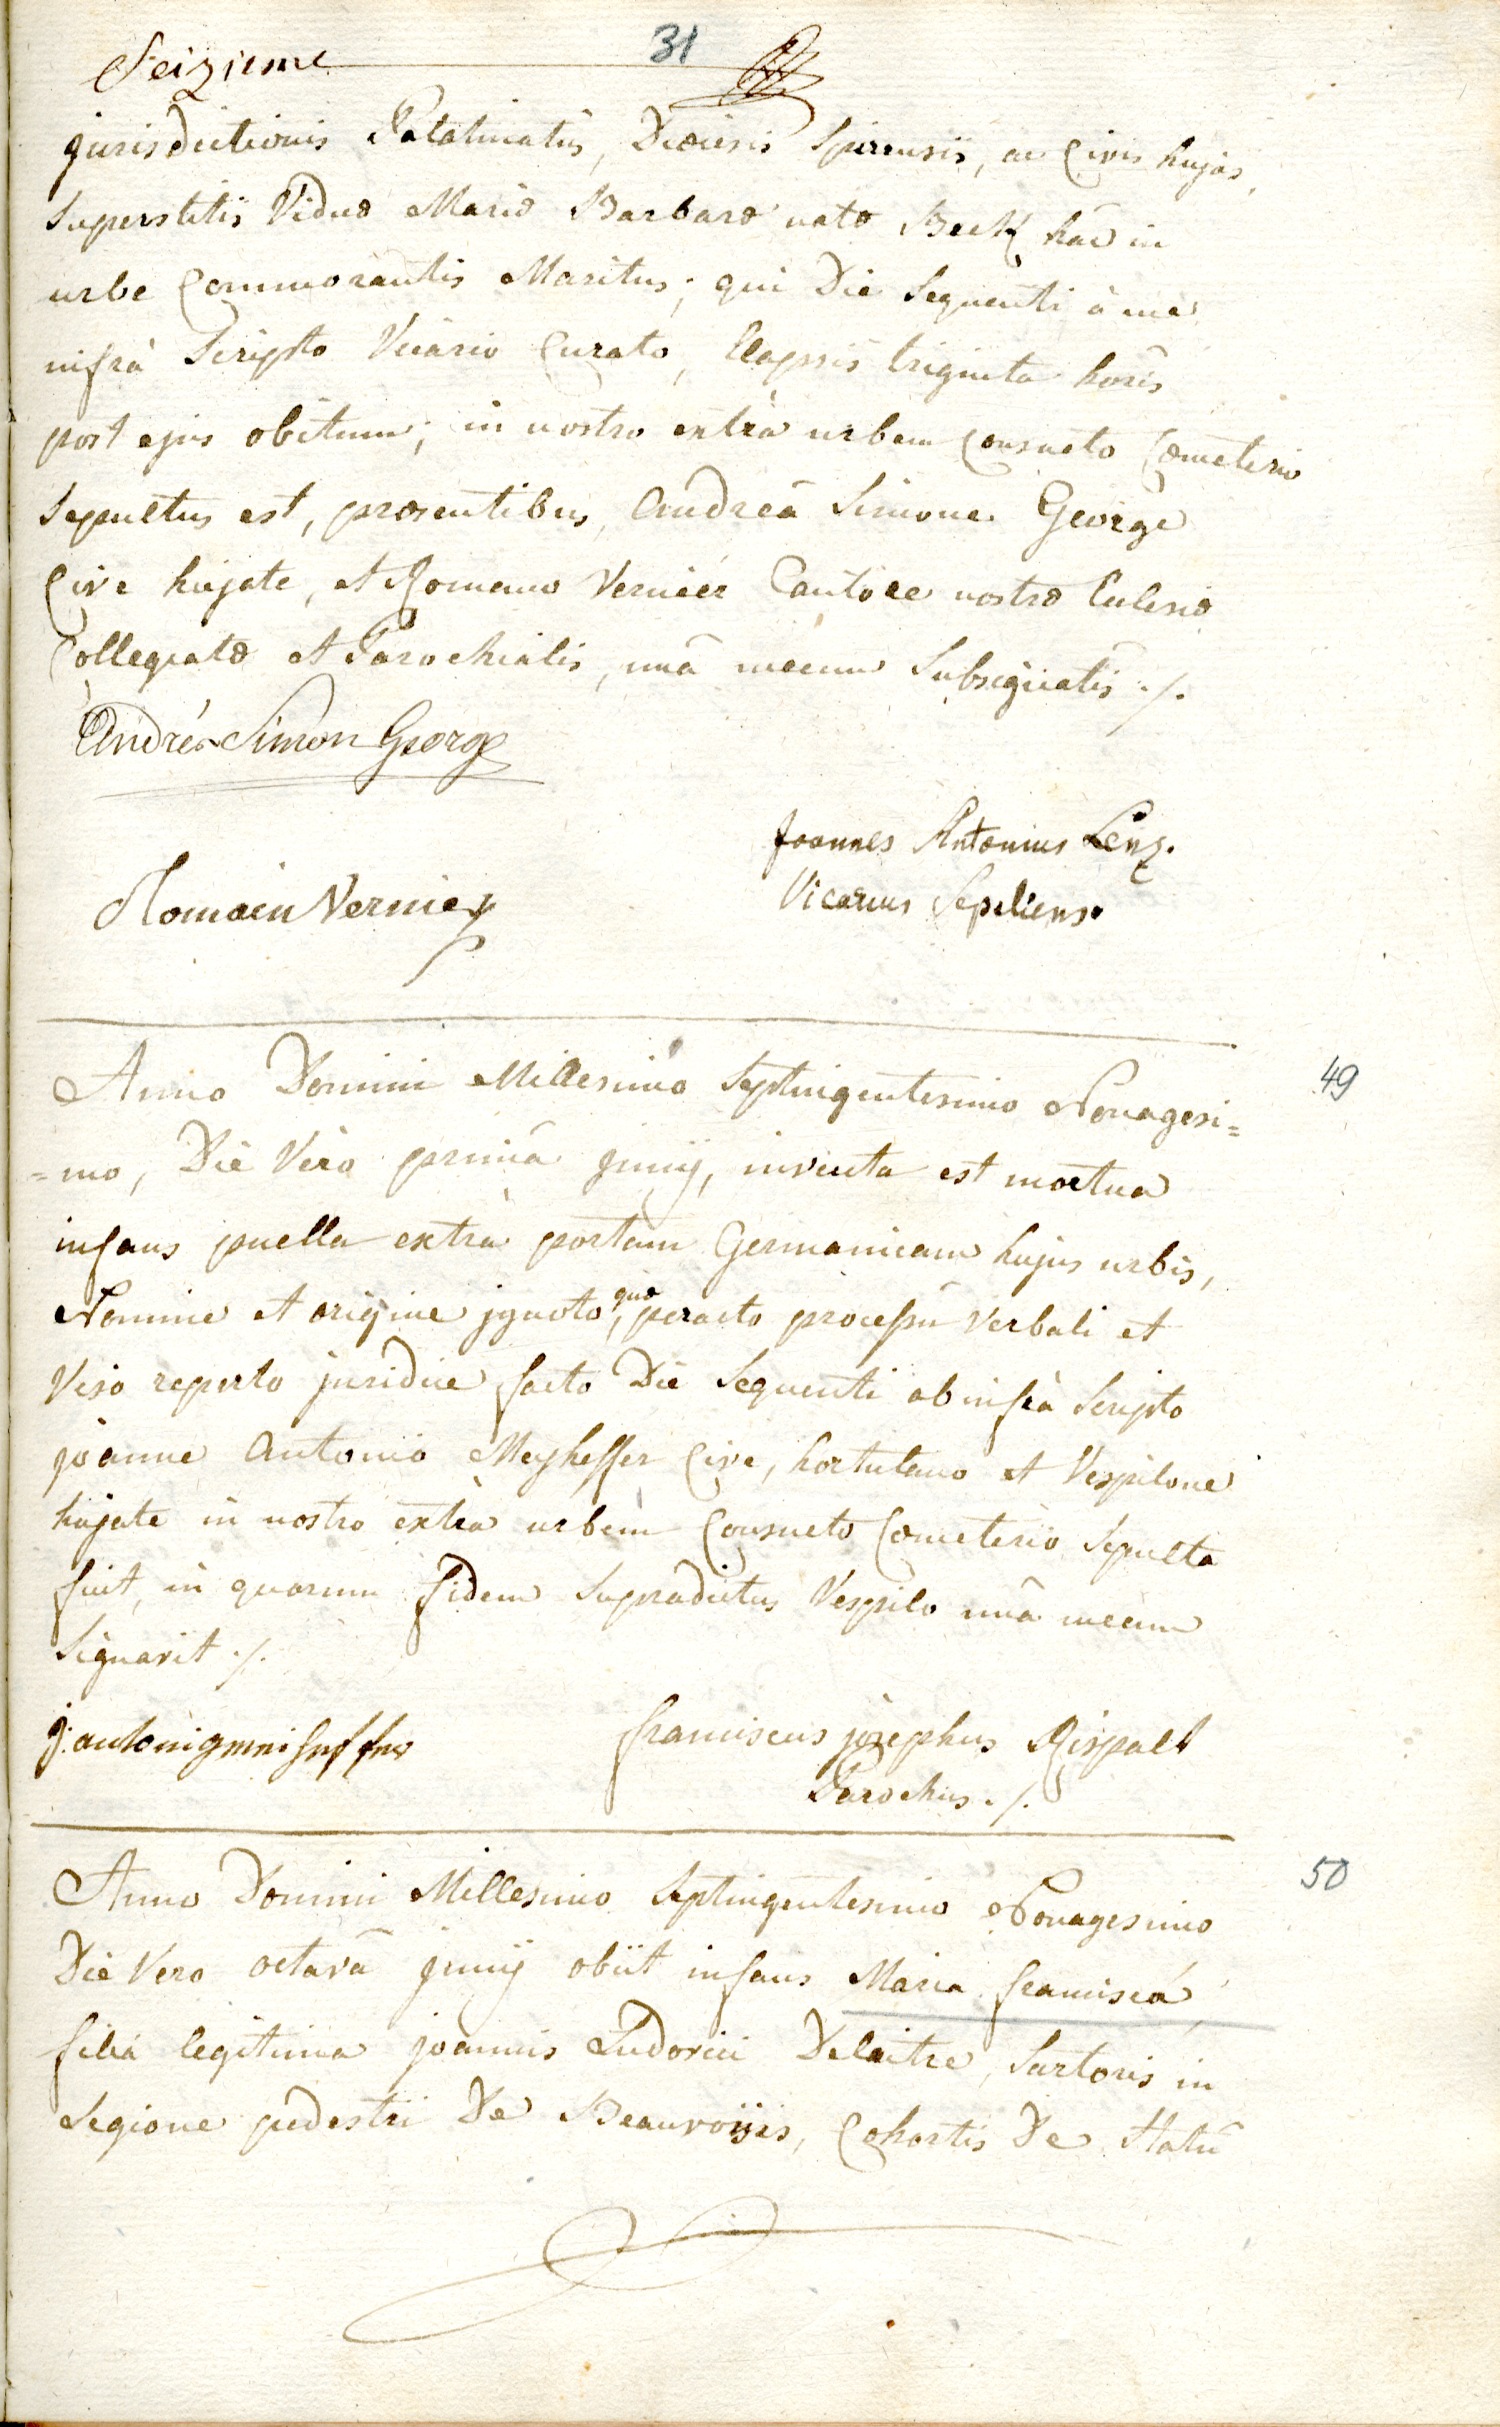 Seizieme 31
jurisdictionis Palatinatûs, Dioecesis Spirensis, ac Civis hujas,
Superstitis Viduæ Mariæ Barbaræ natæ Beck hâc in
urbe Commorantis Maritus; qui Die Sequenti à me
infrà Scripto Vicario Curato, Elapsis triginta horis
post ejus obitum; in nostro extrà urbem Consueto Cœmeterio
Sepultus est, præsentibus, Andreâ Simone George
Cive hujate, et Romano Vernier Cantore nostræ Ecclesiæ
Collegiatæ et Parochialis, unâ mecum Subsignatis ./.
André Simon George
Joannes Antonius Lenz.
Romain Vernier
Vicarius Sepeliens.
Anno Domini Millesimo Septingentesimo Nonagesi= 49
=mo, Die Vero primâ junij, inventa est mortua
infans puella extrà portam Germanicam hujus urbis,
Nomine et origine jgnoto, quæ peracto processu Verbali et
Viso reperto juridice facto Die Sequenti ab infrà Scripto
joanne Antonio Meyheffer Cive, hortulano et Vespilone
hujate in nostro extrà urbem Consueto Cœmeterio Sepulta
fuit, in quorum fidem Supradictus Vespilo unâ mecum
Signavit ./.
franciscus josephus Rispalt
Parochus ./.
Anno Domini Millesimo Septingentesimo Nonagesimo 50
Die Vero octavâ junij obiit infans Maria francisca,
filia legitima joannis Ludovici Delaitre, Sartoris in
Legione pedestri De Beauvoisis, Cohortis De Statu